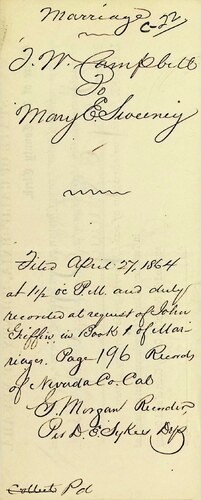 Marriage
C-22
T. W. Campbell
To
Mary E. Sweeney
Filed April 27, 1864
at 1½ oc P.M. and duly
recorded at request of John
Griffin in Book 1 of Mar-
riages. Page 196 Records
of Nevada Co. Cal
T. Morgan Recorder
Per D. E. Sykes Dp
Collect Pd